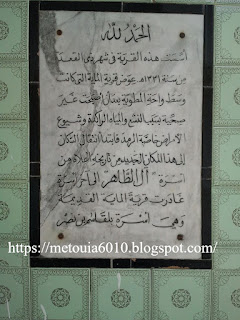 الحمد لله
أسست هذه القرية في شهر ذي القعدة
من سنة ١٣٣١هـ عوض قرية الماية التي كانت
وسط واحة المطوية بعد أن أصبحت غير
صحية بسبب القدم والمياه الراكدة وشيوع
الأمراض خاصة الرمد فابتدأ انتقال السكان
إلى هذا المكان الجديد من تاريخه ابتداء من
أسرة آل الظاهر إلى آخر أسرة
غادرت قرية الماية القديمة
وهي أسرة بلقاسم بن نصر
https://metouia6010.blogspot.com/